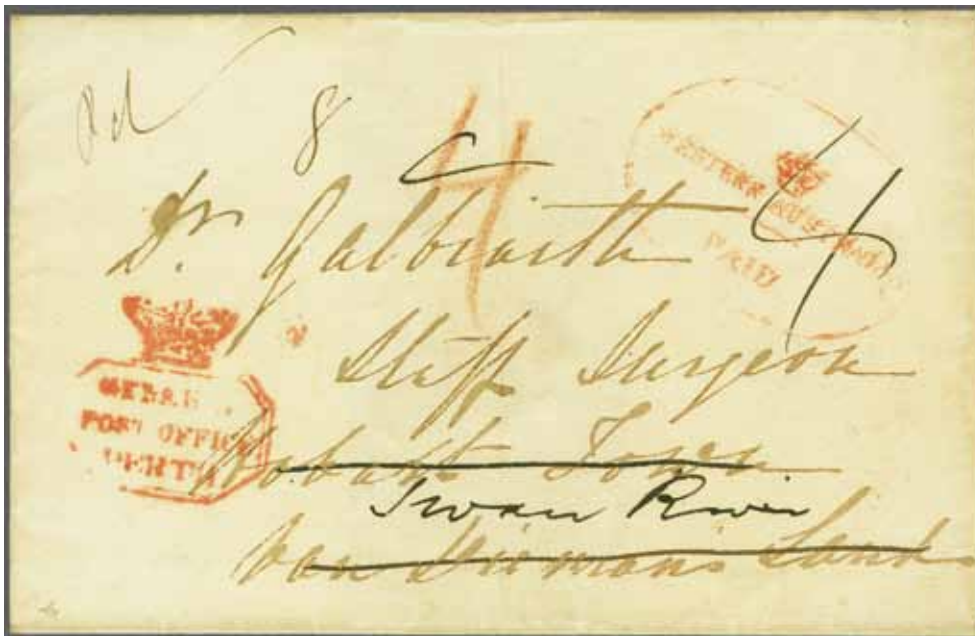 Pd 8 4 4
WESTERN AUSTRALIA
PAID
Dr. Galbraith
Staff Surgeon
GENERAL
POST OFFICE
PERTH
Hobart Town
Swan River
Van Diemans Land